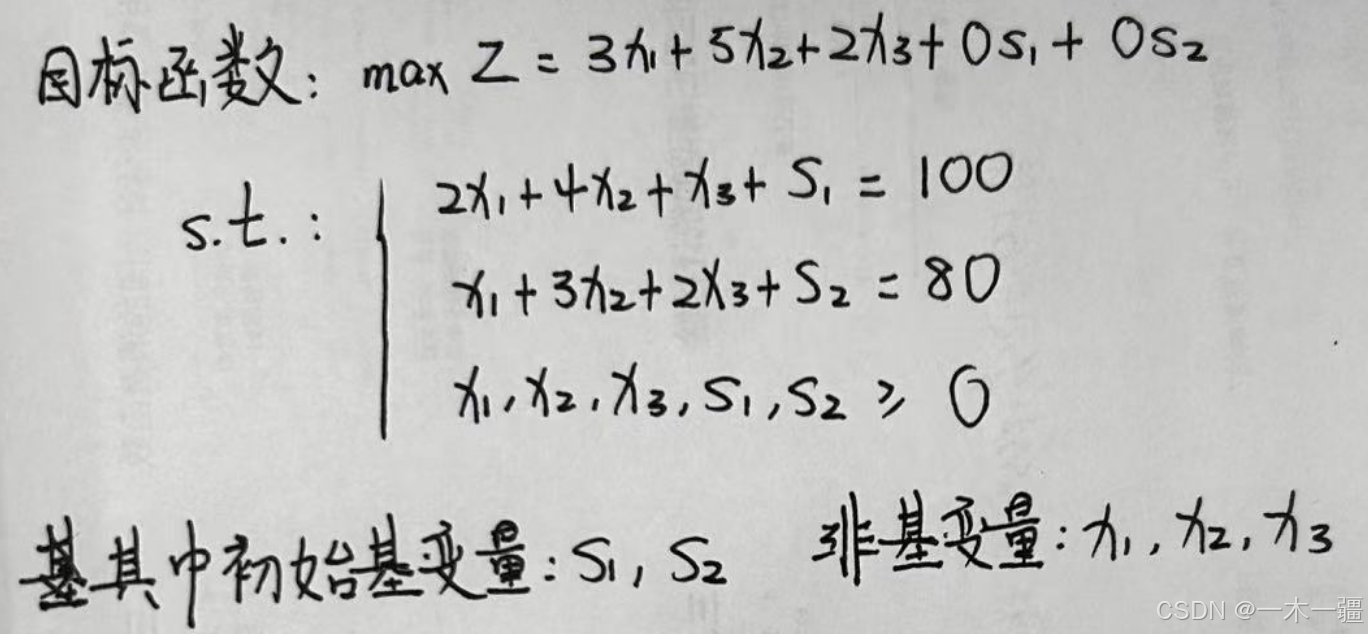 目标函数: max Z = 3x₁ + 5x₂ + 2x₃ + 0s₁ + 0s₂
s.t.: 2x₁ + 4x₂ + x₃ + S₁ = 100
x₁ + 3x₂ + 2x₃ + S₂ = 80
x₁, x₂, x₃, S₁, S₂ ≥ 0
其中初始基变量: S₁, S₂ 非基变量: x₁, x₂, x₃
CSDN @一木一疆